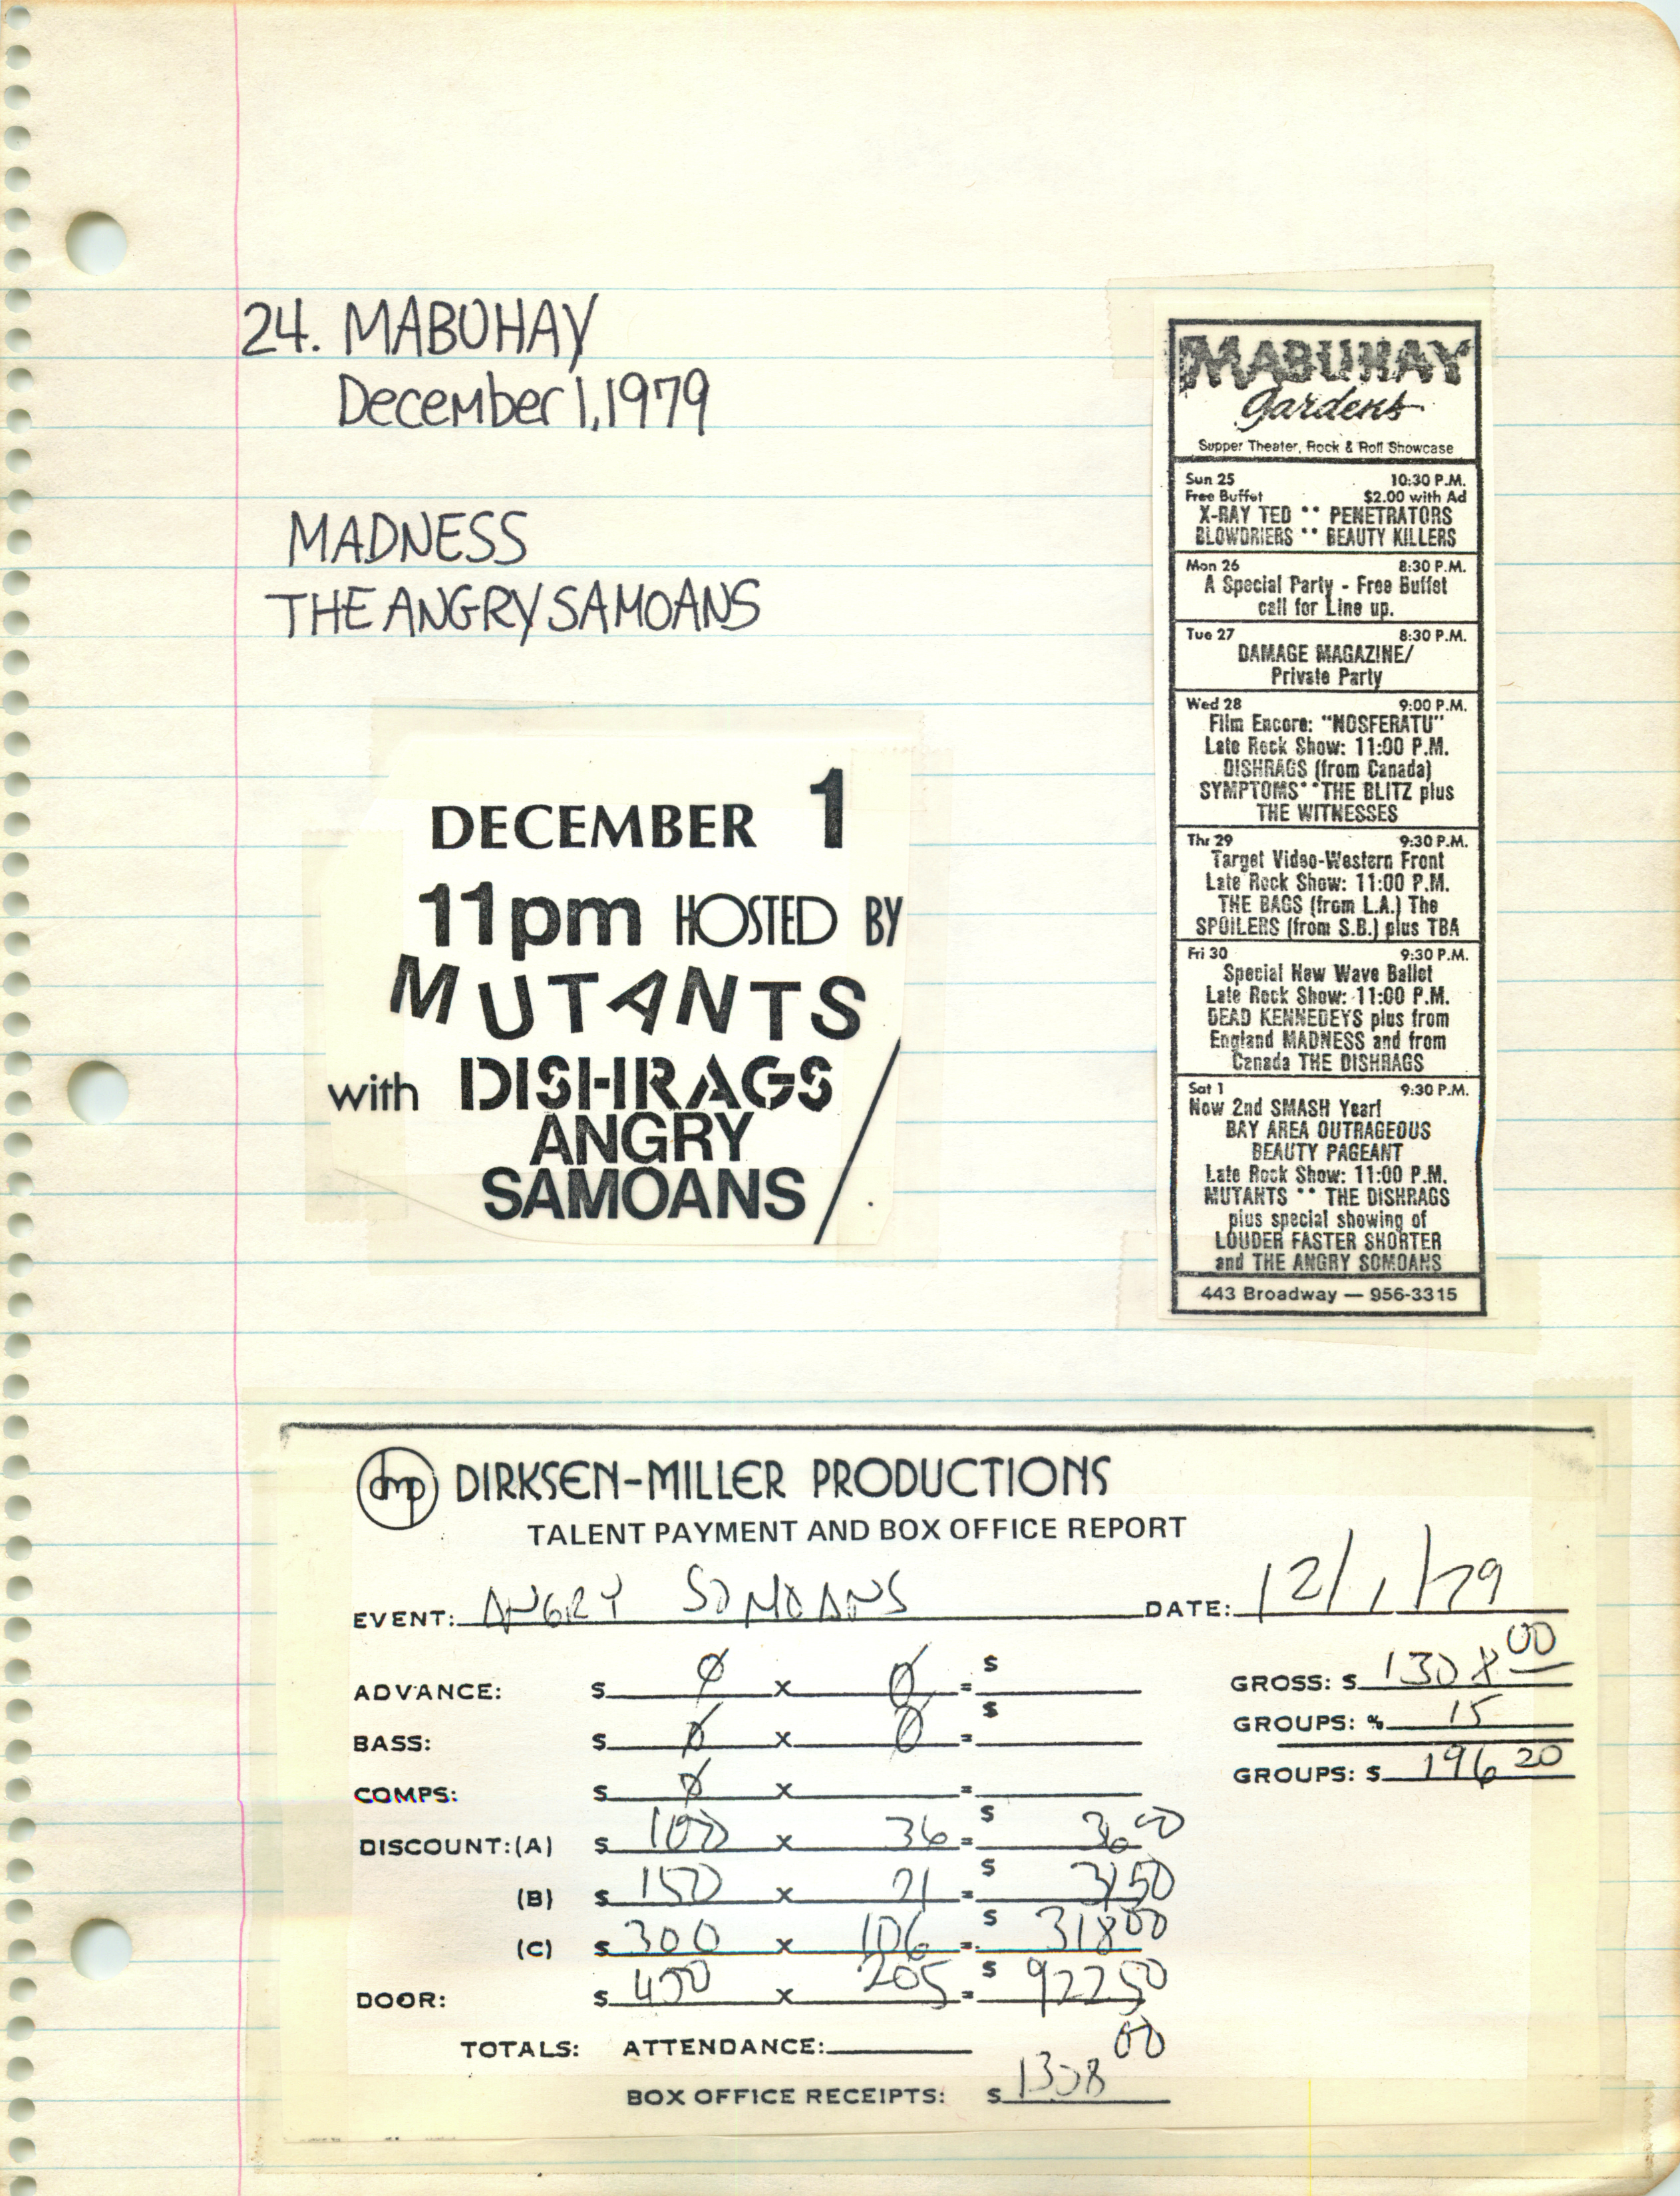 24. MABUHAY
December 1, 1979
MADNESS
THE ANGRY SAMOANS
DECEMBER 1
11pm HOSTED BY
MUTANTS
with DISHRAGS
ANGRY
SAMOANS
MABUHAY
Gardens
Supper Theater, Rock & Roll Showcase
Sun 25 10:30 P.M.
Free Buffet $2.00 with Ad
X-RAY TED ** PENETRATORS
BLOWDRIERS ** BEAUTY KILLERS
Mon 26 8:30 P.M.
A Special Party - Free Buffet
call for Line up.
Tue 27 8:30 P.M.
DAMAGE MAGAZINE/
Private Party
Wed 28 9:00 P.M.
Film Encore: "NOSFERATU"
Late Rock Show: 11:00 P.M.
DISHRAGS (from Canada)
SYMPTOMS ** THE BLITZ plus
THE WITNESSES
Thr 29 9:30 P.M.
Target Video-Western Front
Late Rock Show: 11:00 P.M.
THE BAGS (from L.A.) The
SPOILERS (from S.B.) plus TBA
Fri 30 9:30 P.M.
Special New Wave Ballet
Late Rock Show: 11:00 P.M.
DEAD KENNEDEYS plus from
England MADNESS and from
Canada THE DISHRAGS
Sat 1 9:30 P.M.
Now 2nd SMASH Year!
BAY AREA OUTRAGEOUS
BEAUTY PAGEANT
Late Rock Show: 11:00 P.M.
MUTANTS ** THE DISHRAGS
plus special showing of
LOUDER FASTER SHORTER
and THE ANGRY SOMOANS
443 Broadway — 956-3315
dmp DIRKSEN-MILLER PRODUCTIONS
TALENT PAYMENT AND BOX OFFICE REPORT
EVENT: ANGRY SOMOANS DATE: 12/1/79
ADVANCE: $ 0 x 0 = $ GROSS: $ 1308 00
BASS: $ 0 x 0 = $ GROUPS: % 15
COMPS: $ 0 x = GROUPS: $ 196 20
DISCOUNT: (A) $ 100 x 36 = $ 36 00
(B) $ 150 x 21 = $ 31 50
(C) $ 300 x 106 = $ 318 00
DOOR: $ 450 x 205 = $ 922 50
TOTALS: ATTENDANCE:
BOX OFFICE RECEIPTS: $ 1308 00